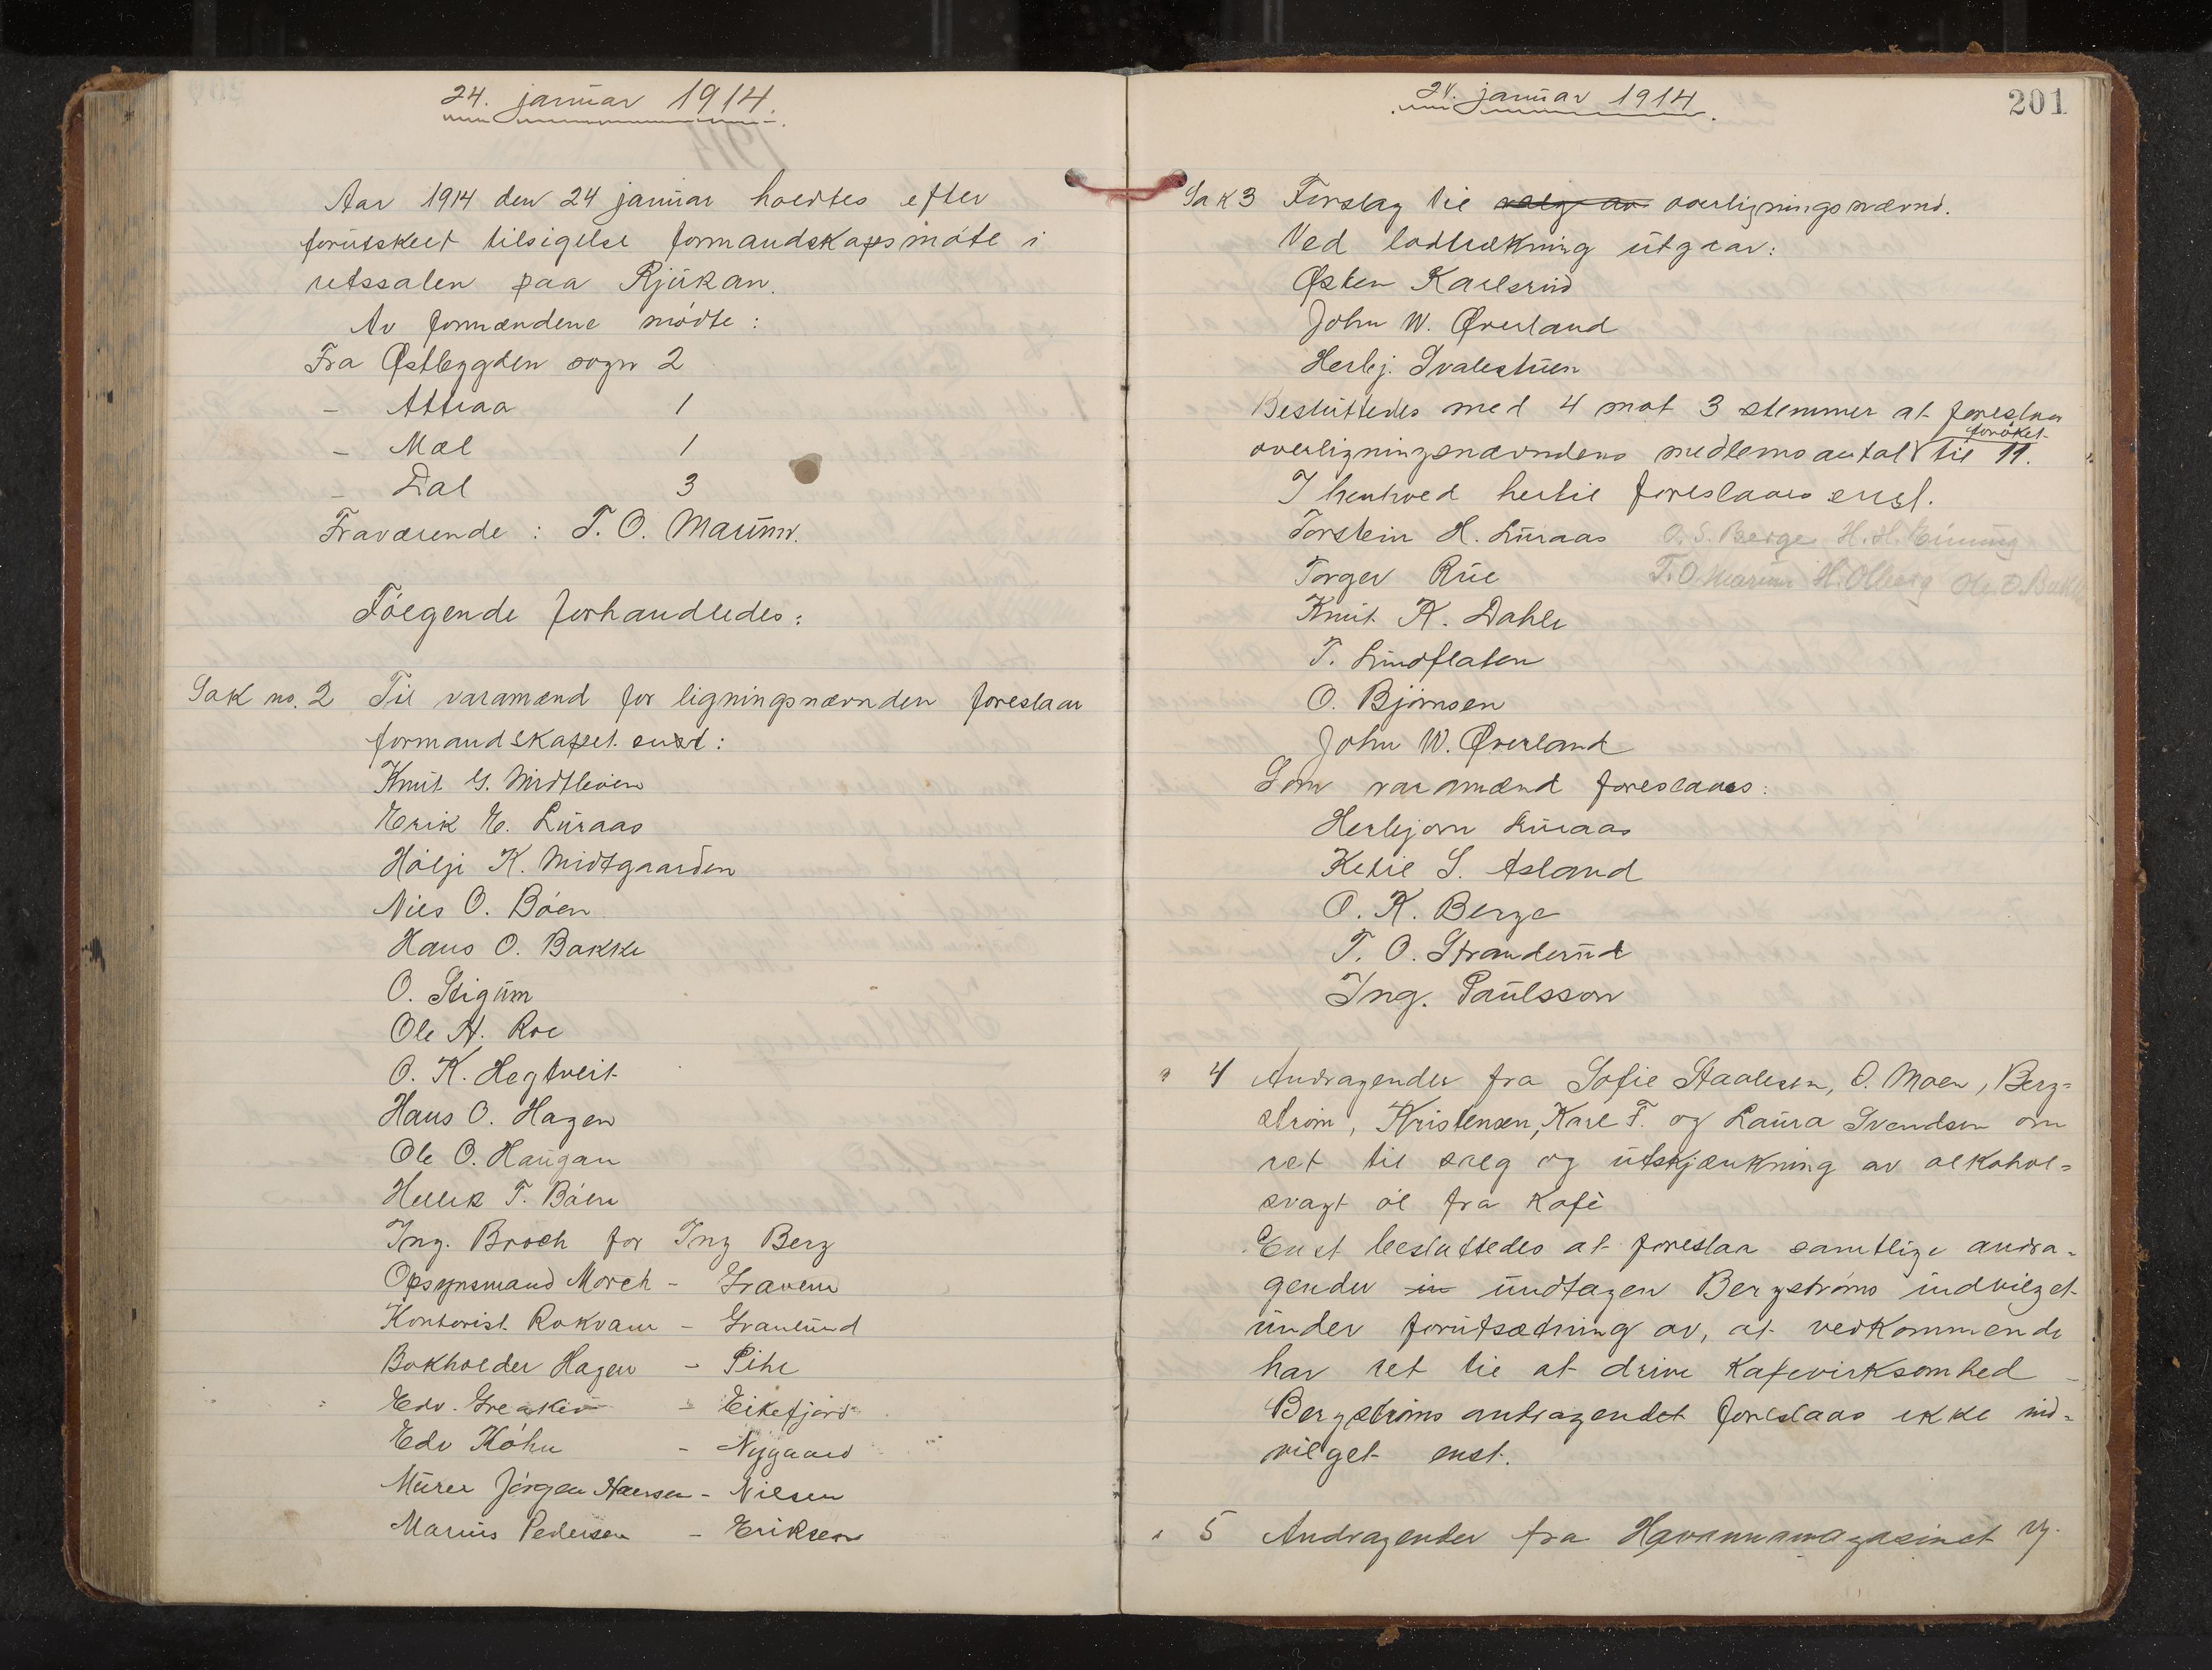 24. januar 1914.
Aar 1914 den 24 januar holdtes efter
forutskelt tilsigelse formandskapsmöte i
retssalen paa Rjukan.
Av formændene mödte:
Fra Östbygden sogn 2
- Attraa 1
- Mæl 1
- Dal 3
Fraværende: T. O. Marum.
Fölgende forhandledes:
Sak no. 2 Til varamænd for ligningsnævnden foreslaar
formandskapet enst:
Knut G. Midtlöien
Erik E. Luraas
Hölje K. Midtgaarden
Nils O. Böen
Hans O. Bakke
O. Stigum
Ole H. Roe
O. K. Hegtveit
Hans O. Hagen
Ole O. Haugan
Hellik T. Böen
Ing. Broch for Ing Berg
Opsynsmand Morch - Graven
Kontorist Rokvam - Granlund
Bokholder Hagen - Pihl
Edv. - Eikefjord
Edv Köhn - Nygaard
Murer Jörgen Hansen - Nilsen
Marius Pedersen - Eriksen
24. januar 1914.
201
Sak 3 Forslag til valg av overligningsnævnd.
Ved lodtrækning utgaar:
Østen Karlsrud
John W. Øverland
Herbj. Svalestuen
Besluttedes med 4 mot 3 stemmer at foreslaa
foröket
overligningsnævndens medlemsantal til 11.
I henhold hertil foreslaaes enst.
Torstein H. Luraas O. S. Berge H. H. Einung
Torger Rue T. O Marum H. Olberg Ole O. Bakke
Knut K. Dahle
T. Lindflaten
O. Björnsen
John W. Øverland
Som varamænd foreslaaes:
Herbjörn Luraas
Ketil S. Asland
O. K. Berge
T. O. Stranderud
Ing. Paulsson
" 4 Andragender fra Sofie Staalesen, O. Moen, Berg=
ström, Kristensen, Karl F. og Laura Svendsen om
ret til salg og utskjænkning av alkohol=
svagt öl fra Kafè
Enst besluttedes at foreslaa samtlige andra=
gender in undtagen Bergströms indvilget
under forutsætning av, at vedkommende
har ret til at drive Kafevirksomhed -
Bergströms andragendet foreslaas ikke ind=
vilget enst.
" 5 Andragender fra Havannamagasinet og